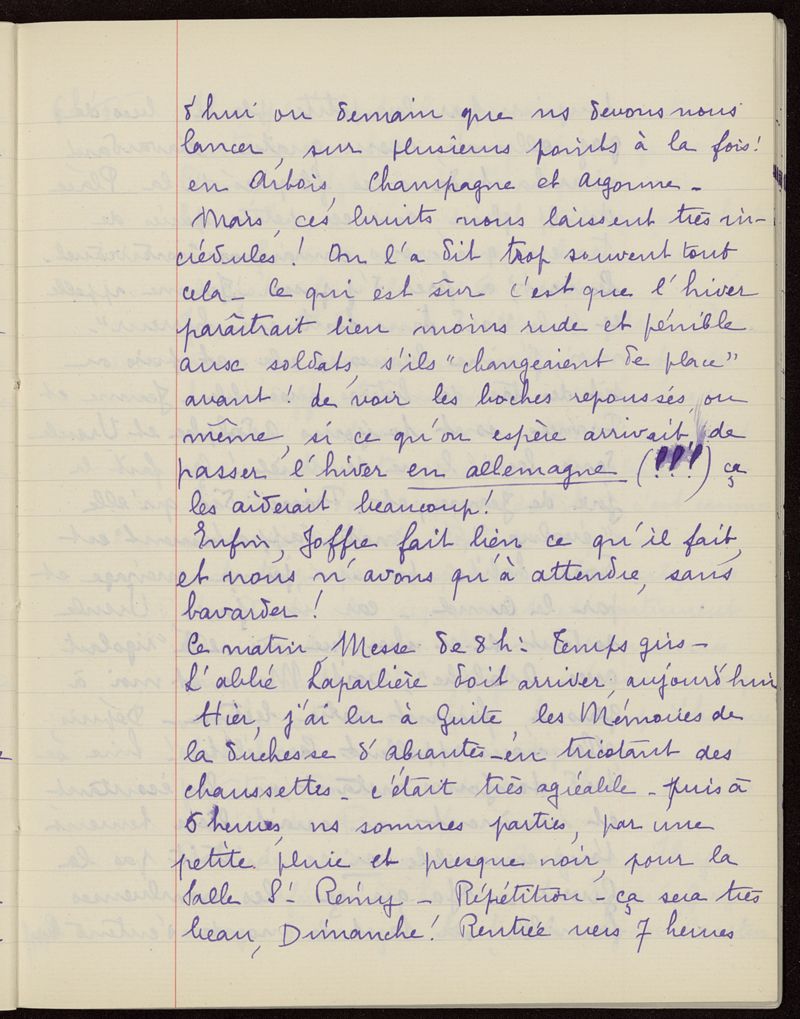 d'hui ou demain que ns devons nous
lancer, sur plusieurs points à la fois!
en Artois, Champagne et Argonne -
Mais, ces bruits nous laissent très in-
crédules! On l'a dit trop souvent tout
cela - Ce qui est sûr c'est que l'hiver
paraîtrait bien moins rude et pénible
aux soldats, s'ils "changeaient de place"
avant! de voir les boches repoussés, ou
même, si ce qu'on espère arrivait, de
passer l'hiver en allemagne (!!!) ça
les aiderait beaucoup!
Enfin, Joffre fait bien ce qu'il fait,
et nous n'avons qu'à attendre, sans
bavarder!
Ce matin, Messe de 8h: Temps gris -
L'abbé Laparlière doit arriver, aujourd'hui
Hier, j'ai lu à Guite, les Mémoires de
la duchesse d'Abrantes - en tricotant des
chaussettes - c'était très agréable - puis à
5 heures, ns sommes parties, par une
petite pluie et presque noir, pour la
Salle St Remy - Répétition - ça sera très
beau, Dimanche! Rentrée vers 7 heures